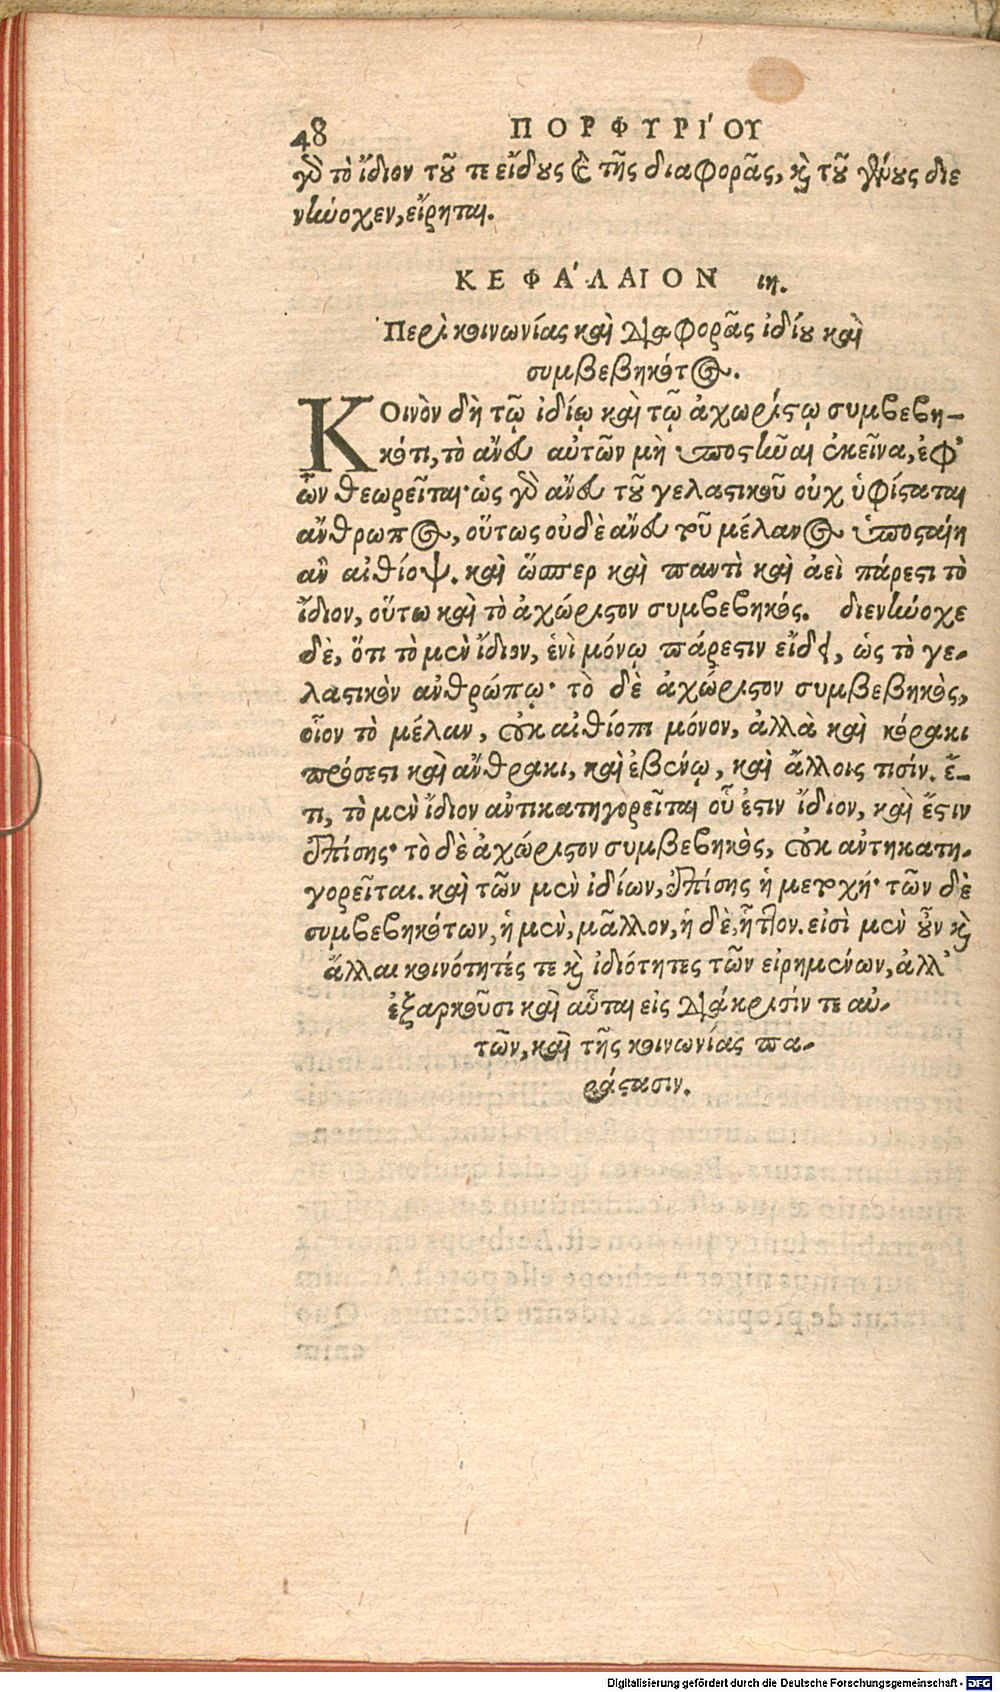 48 ΠΟΡΦΥΡΙ´ΟΥ
γὰρ τὸ ἴδιον τοῦ τε εἴδους καὶ τῆς διαφορᾶς, καὶ τοῦ γένους διε
νήνοχεν, εἴρηται.
ΚΕΦΑ´ΛΑΙΟΝ ιη.
Περὶ κοινωνίας καὶ διαφορᾶς ἰδίου καὶ
συμβεβηκότος.
ΚΟινὸν δὴ τῷ ἰδίῳ καὶ τῷ ἀχωρίστῳ συμβεβη-
κότι, τὸ ἄνευ αὐτῶν μὴ ὑποστῆναι ἐκεῖνα, ἐφ'
ὧν θεωρεῖται· ὡς γὰρ ἄνευ τοῦ γελαστικοῦ οὐχ ὑφίσταται
ἄνθρωπος, οὕτως οὐδὲ ἄνευ τοῦ μέλανος ὑποσταίη
ἂν αἰθίοψ. καὶ ὥσπερ καὶ παντὶ καὶ ἀεὶ πάρεστι τὸ
ἴδιον, οὕτω καὶ τὸ ἀχώριστον συμβεβηκός. διενήνοχε
δὲ, ὅτι τὸ μὲν ἴδιον, ἑνὶ μόνῳ πάρεστιν εἴδει, ὡς τὸ γε-
λαστικὸν ἀνθρώπῳ· τὸ δὲ ἀχώριστον συμβεβηκὸς,
οἷον τὸ μέλαν, οὐκ αἰθίοπι μόνον, ἀλλὰ καὶ κόρακι
πρόσεστι καὶ ἄνθρακι, καὶ ἐβένῳ, καὶ ἄλλοις τισίν. ἔ-
τι, τὸ μὲν ἴδιον ἀντικατηγορεῖται οὗ ἐστιν ἴδιον, καὶ ἔστιν
ἐπίσης· τὸ δὲ ἀχώριστον συμβεβηκὸς, οὐκ ἀντηκατη-
γορεῖται. καὶ τῶν μὲν ἰδίων, ἐπίσης ἡ μετοχή· τῶν δὲ
συμβεβηκότων, ἡ μὲν, μᾶλλον, ἡ δὲ, ἧττον. εἰσὶ μὲν οὖν καὶ
ἄλλαι κοινότητές τε καὶ ἰδιότητες τῶν εἰρημένων, ἀλλ'
ἐξαρκοῦσι καὶ αὗται εἰς διάκρισίν τε αὐ-
τῶν, καὶ τῆς κοινωνίας πα-
ράστασιν.
Digitalisierung gefördert durch die Deutsche Forschungsgemeinschaft - DFG